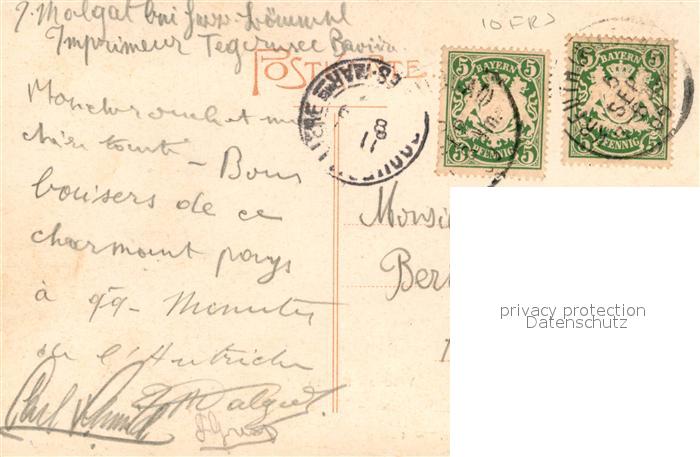 J. Malgat bei Herr Lömmel
Imprimeur Tegernsee Bavière
10 FRS
POSTKARTE
5 BAYERN 5
5 PFENNIG 5
5 BAYERN 5
5 PFENNIG 5
Mon cher oncle et ma
chère tante - Bons
baisers de ce
charmant pays
à qq. minutes
de l'Autriche
Carl Schmidt J Malgat
Monsi
Ber
privacy protection
Datenschutz